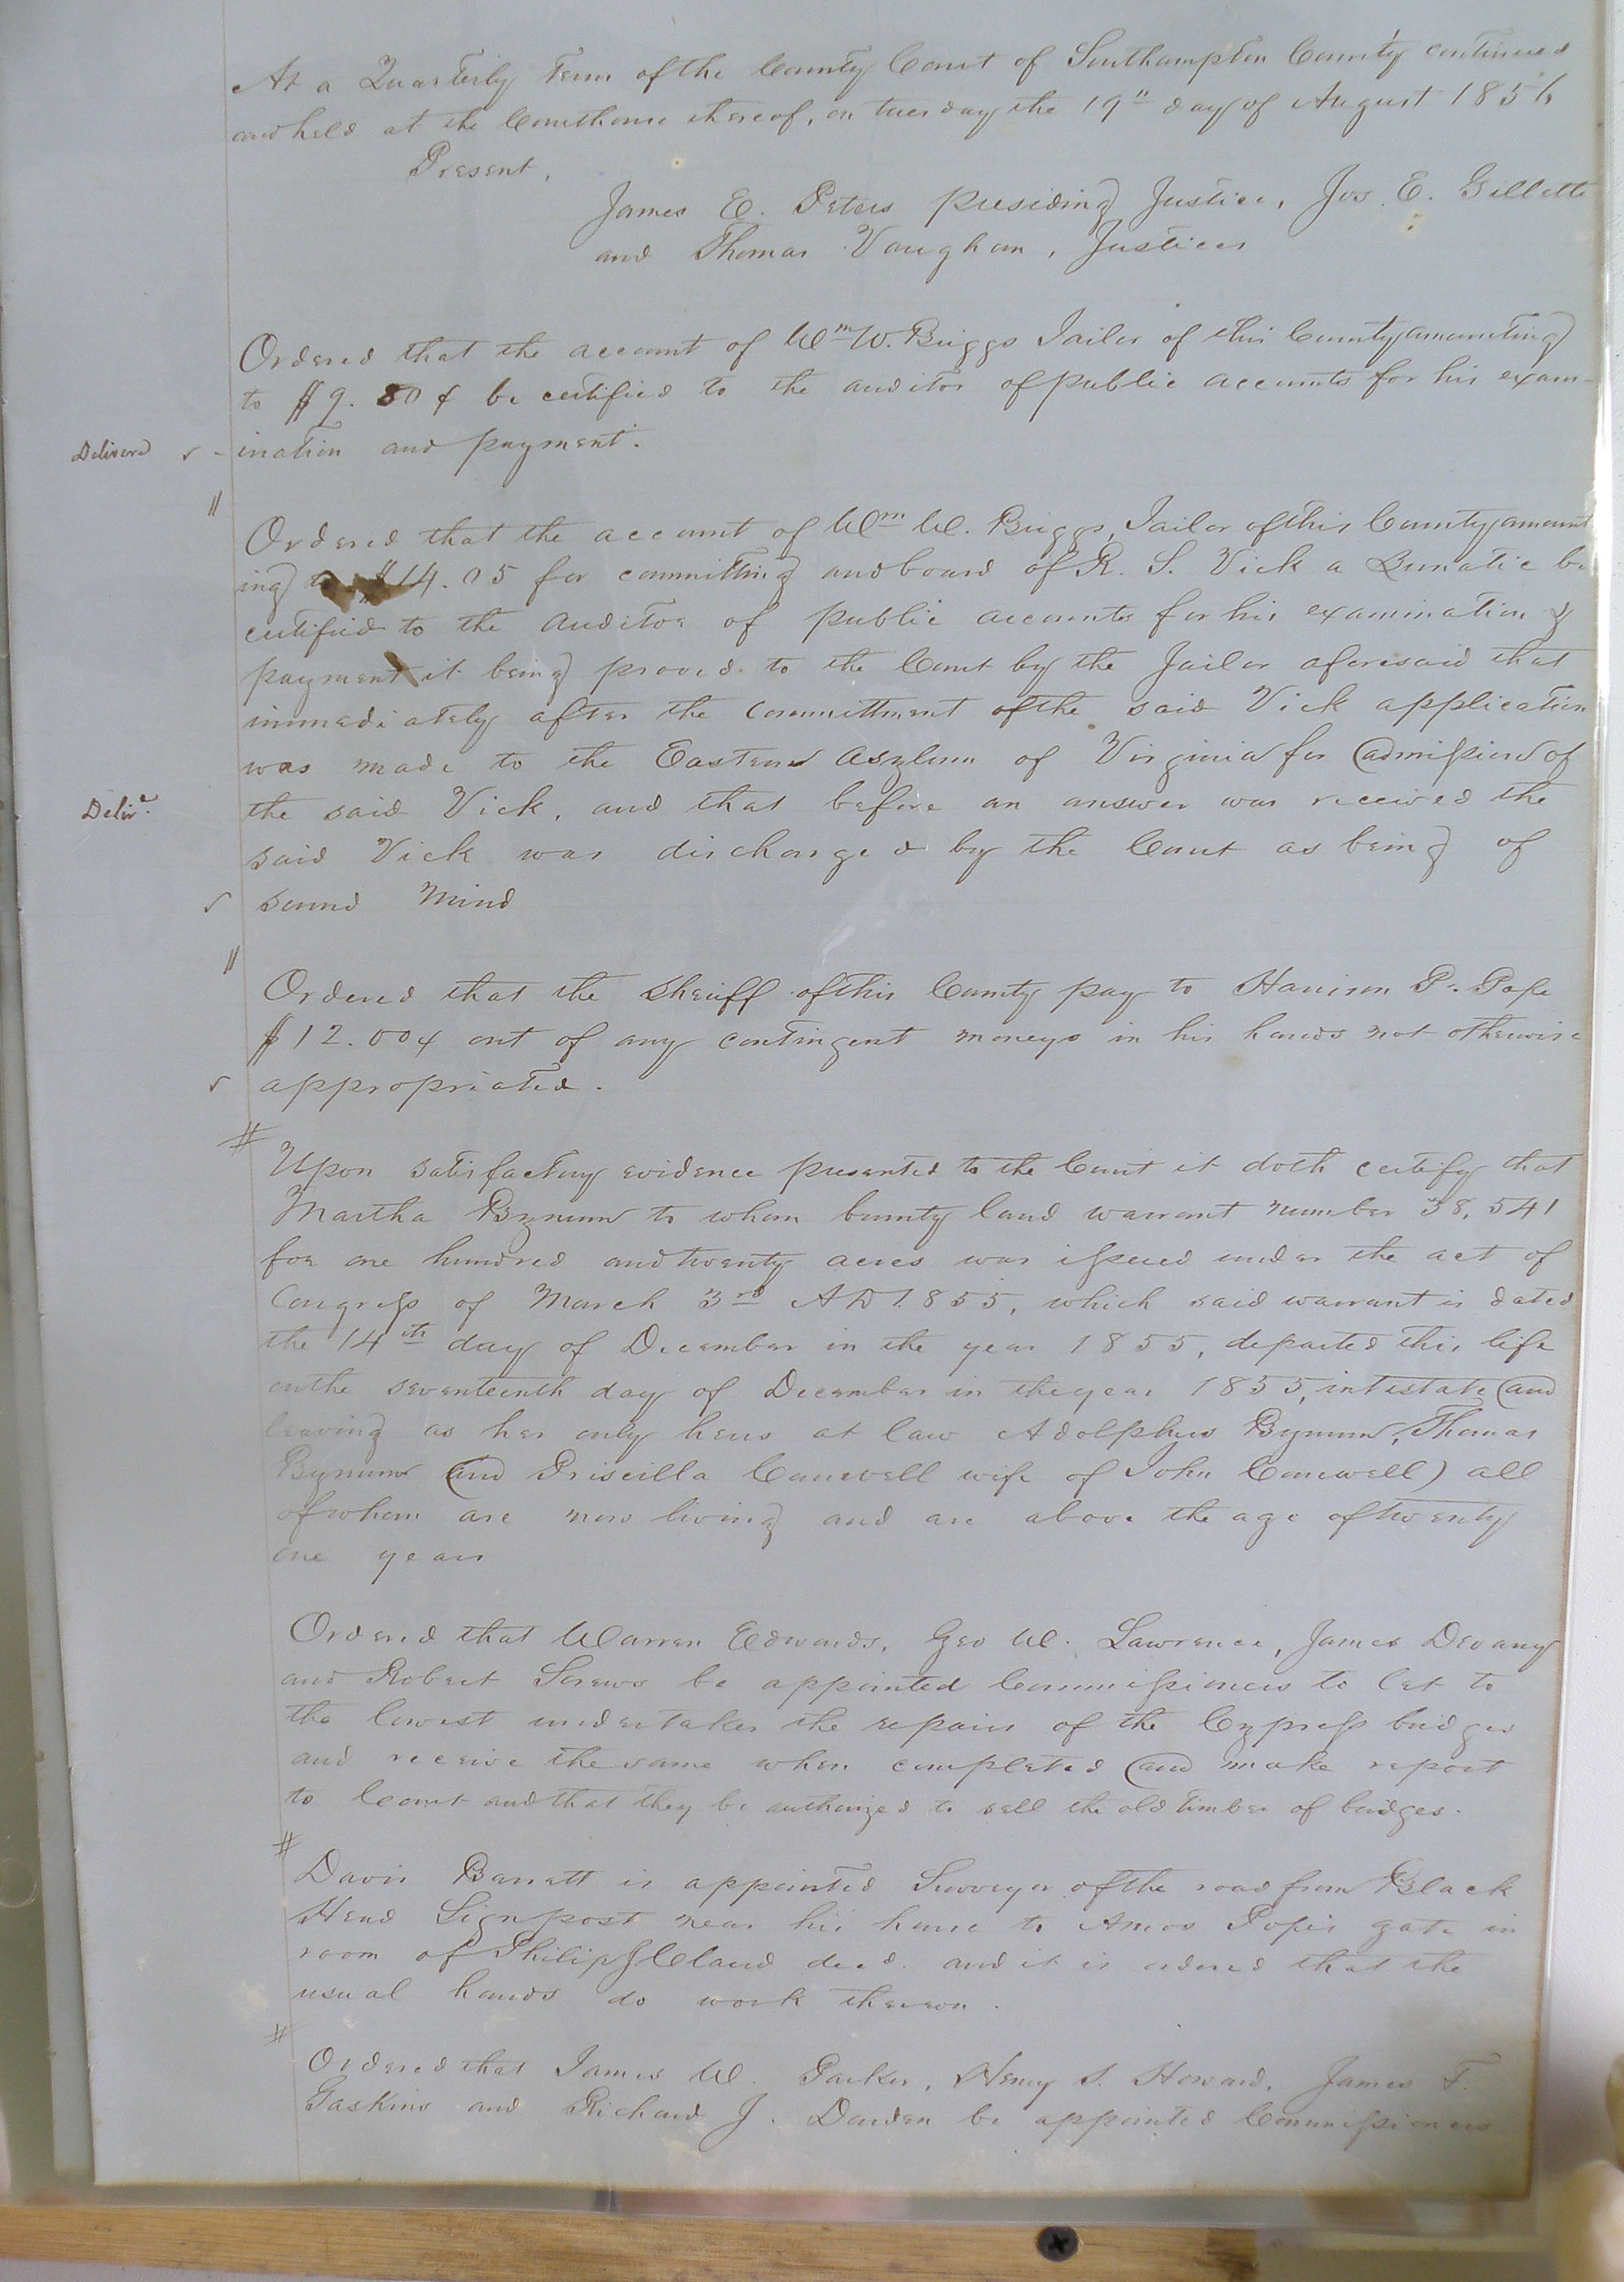 At a Quarterly Term of the County Court of Southampton County continued
and held at the Courthouse thereof, on tuesday the 19" day of August 1856
Present,
James E. Peters presiding Justice, Jos. E. Gillette
and Thomas Vaughan, Justices
Ordered that the account of Wm W. Briggs Jailor of this County amounting
to $9.50 ¢ be certified to the auditor of public accounts for his exam-
Delivered ✓ - ination and payment.
"
Ordered that the account of Wm W. Briggs, Jailor of this County amount
ing to $14.05 for committing and board of R. S. Vick a Lunatic be
certified to the Auditor of public accounts for his examination &
payment it being proved to the Court by the Jailor aforesaid that
immediately after the committment of the said Vick application
was made to the Eastern Asylum of Virginia for admission of
Delivd. the said Vick, and that before an answer was received the
said Vick was discharged by the Court as being of
✓ sound Mind
"
Ordered that the Sheriff of this County pay to Harrison P. Pope
$12.00 ¢ out of any contingent moneys in his hands not otherwise
✓ appropriated.
#
Upon satisfactory evidence presented to the Court it doth certify that
Martha Bynum to whom bounty land warrant number 38,541
for one hundred and twenty acres was issued under the act of
Congress of March 3rd AD 1855, which said warrant is dated
the 14th day of December in the year 1855, departed this life
on the seventeenth day of December in the year 1855, intestate and
leaving as her only heirs at law Adolphus Bynum, Thomas
Bynum and Priscilla Councell wife of John Councell) all
of whom are now living and are above the age of twenty
one years
Ordered that Warren Edwards, Geo W. Lawrence, James Devany
and Robert Screws be appointed Commissioners to let to
the lowest undertaker the repairs of the Cypress bridges
and receive the same when completed and make report
to Court and that they be authorized to sell the old timber of bridges.
#
Davis Barratt is appointed Surveyor of the road from Black
Head Signpost near his house to Amos Pope's gate in
room of Philip decd. and it is ordered that the
usual hands do work thereon.
#
Ordered that James W. Parker, Henry S. Howard, James F.
Gaskins and Richard J. Darden be appointed Commissioners